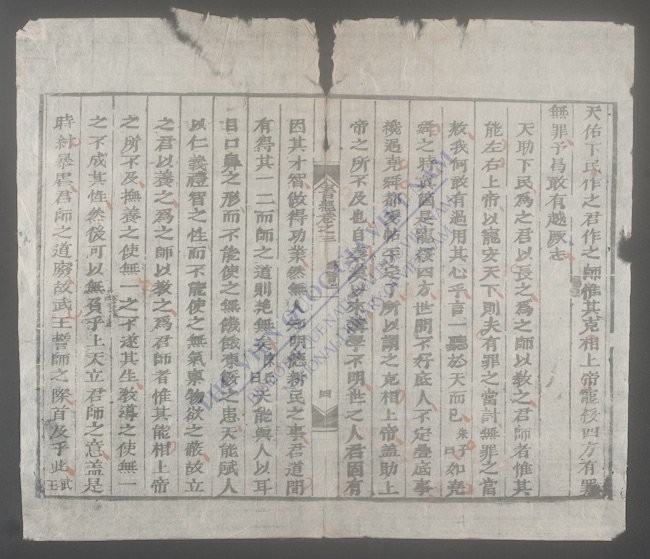 天佑下民作之君作之師惟其克相上帝寵綏四方有罪
無罪予曷敢有越厥志
天助下民為之君以長之為之師以教之君師者惟其
能左右上帝以寵安天下則夫有罪之當討無罪之當
赦我何敢有過用其心乎言一聽於天而已朱子曰如堯
舜之時真箇是寵綏四方世間不好底人不定疊底事
機遇堯舜都安帖平定了所以謂之克相上帝蓋助上
帝之所不及也自秦漢以來學不明世之人君固有
書經卷之三
四
因其才智做得功業然無人明德新民之事君道間
有得其一二而師之道則絶無矣陳氏曰天能與人以耳
目口鼻之形而不能使之無饑餓凍餒之患天能賦人
以仁義禮智之性而不能使之無氣稟物欲之蔽故立
之君以養之為之師以教之為君師者惟其能相上帝
之所不及撫養之使無一之不遂其生教導之使無一
之不成其性然後可以無負乎上天立君師之意蓋是
時紂暴虐君師之道廢故武王誓師之際首及乎此武王
THƯ VIỆN QUỐC GIA VIỆT NAM
NATIONAL LIBRARY OF VIETNAM